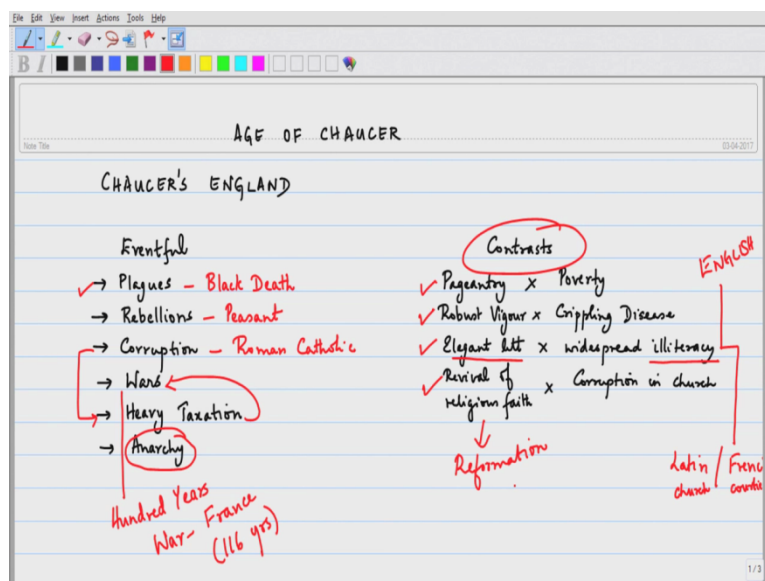 File Edit View Insert Actions Tools Help
B I
AGE OF CHAUCER
Note Title
03-04-2017
CHAUCER'S ENGLAND
Eventful
→ Plagues - Black Death
→ Rebellions - Peasant
→ Corruption - Roman Catholic
→ Wars
→ Heavy Taxation
→ Anarchy
Hundred Years
War - France
(116 yrs)
Contrasts
Pageantry x Poverty
Robust Vigour x Crippling Disease
Elegant litt x widespread illiteracy
Revival of
religious faith x Corruption in church
Reformation
ENGLISH
Latin / Frenc
church
1/3